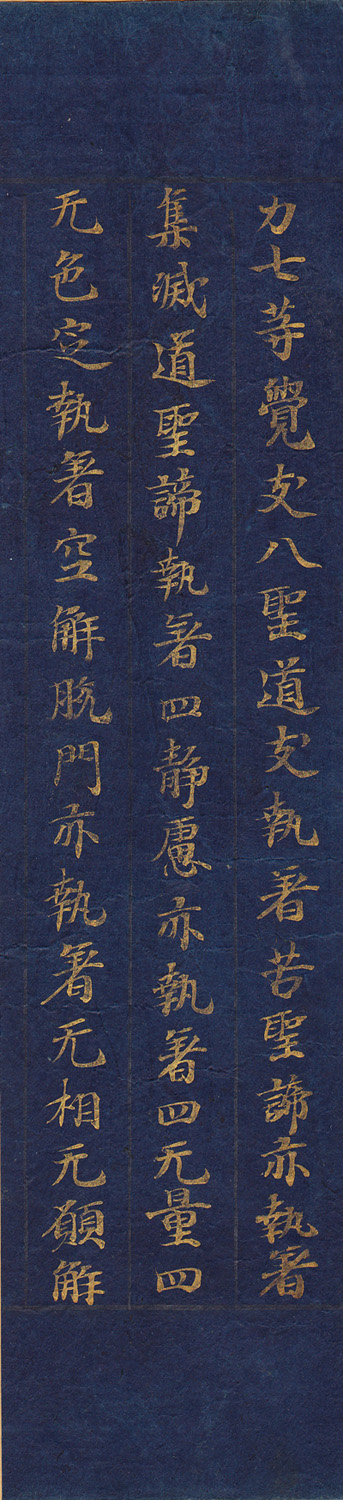 力七等覺支八聖道支執著苦聖諦亦執著
集滅道聖諦執著四静慮亦執著四无量四
无色定執著空解脱門亦執著无相无願解